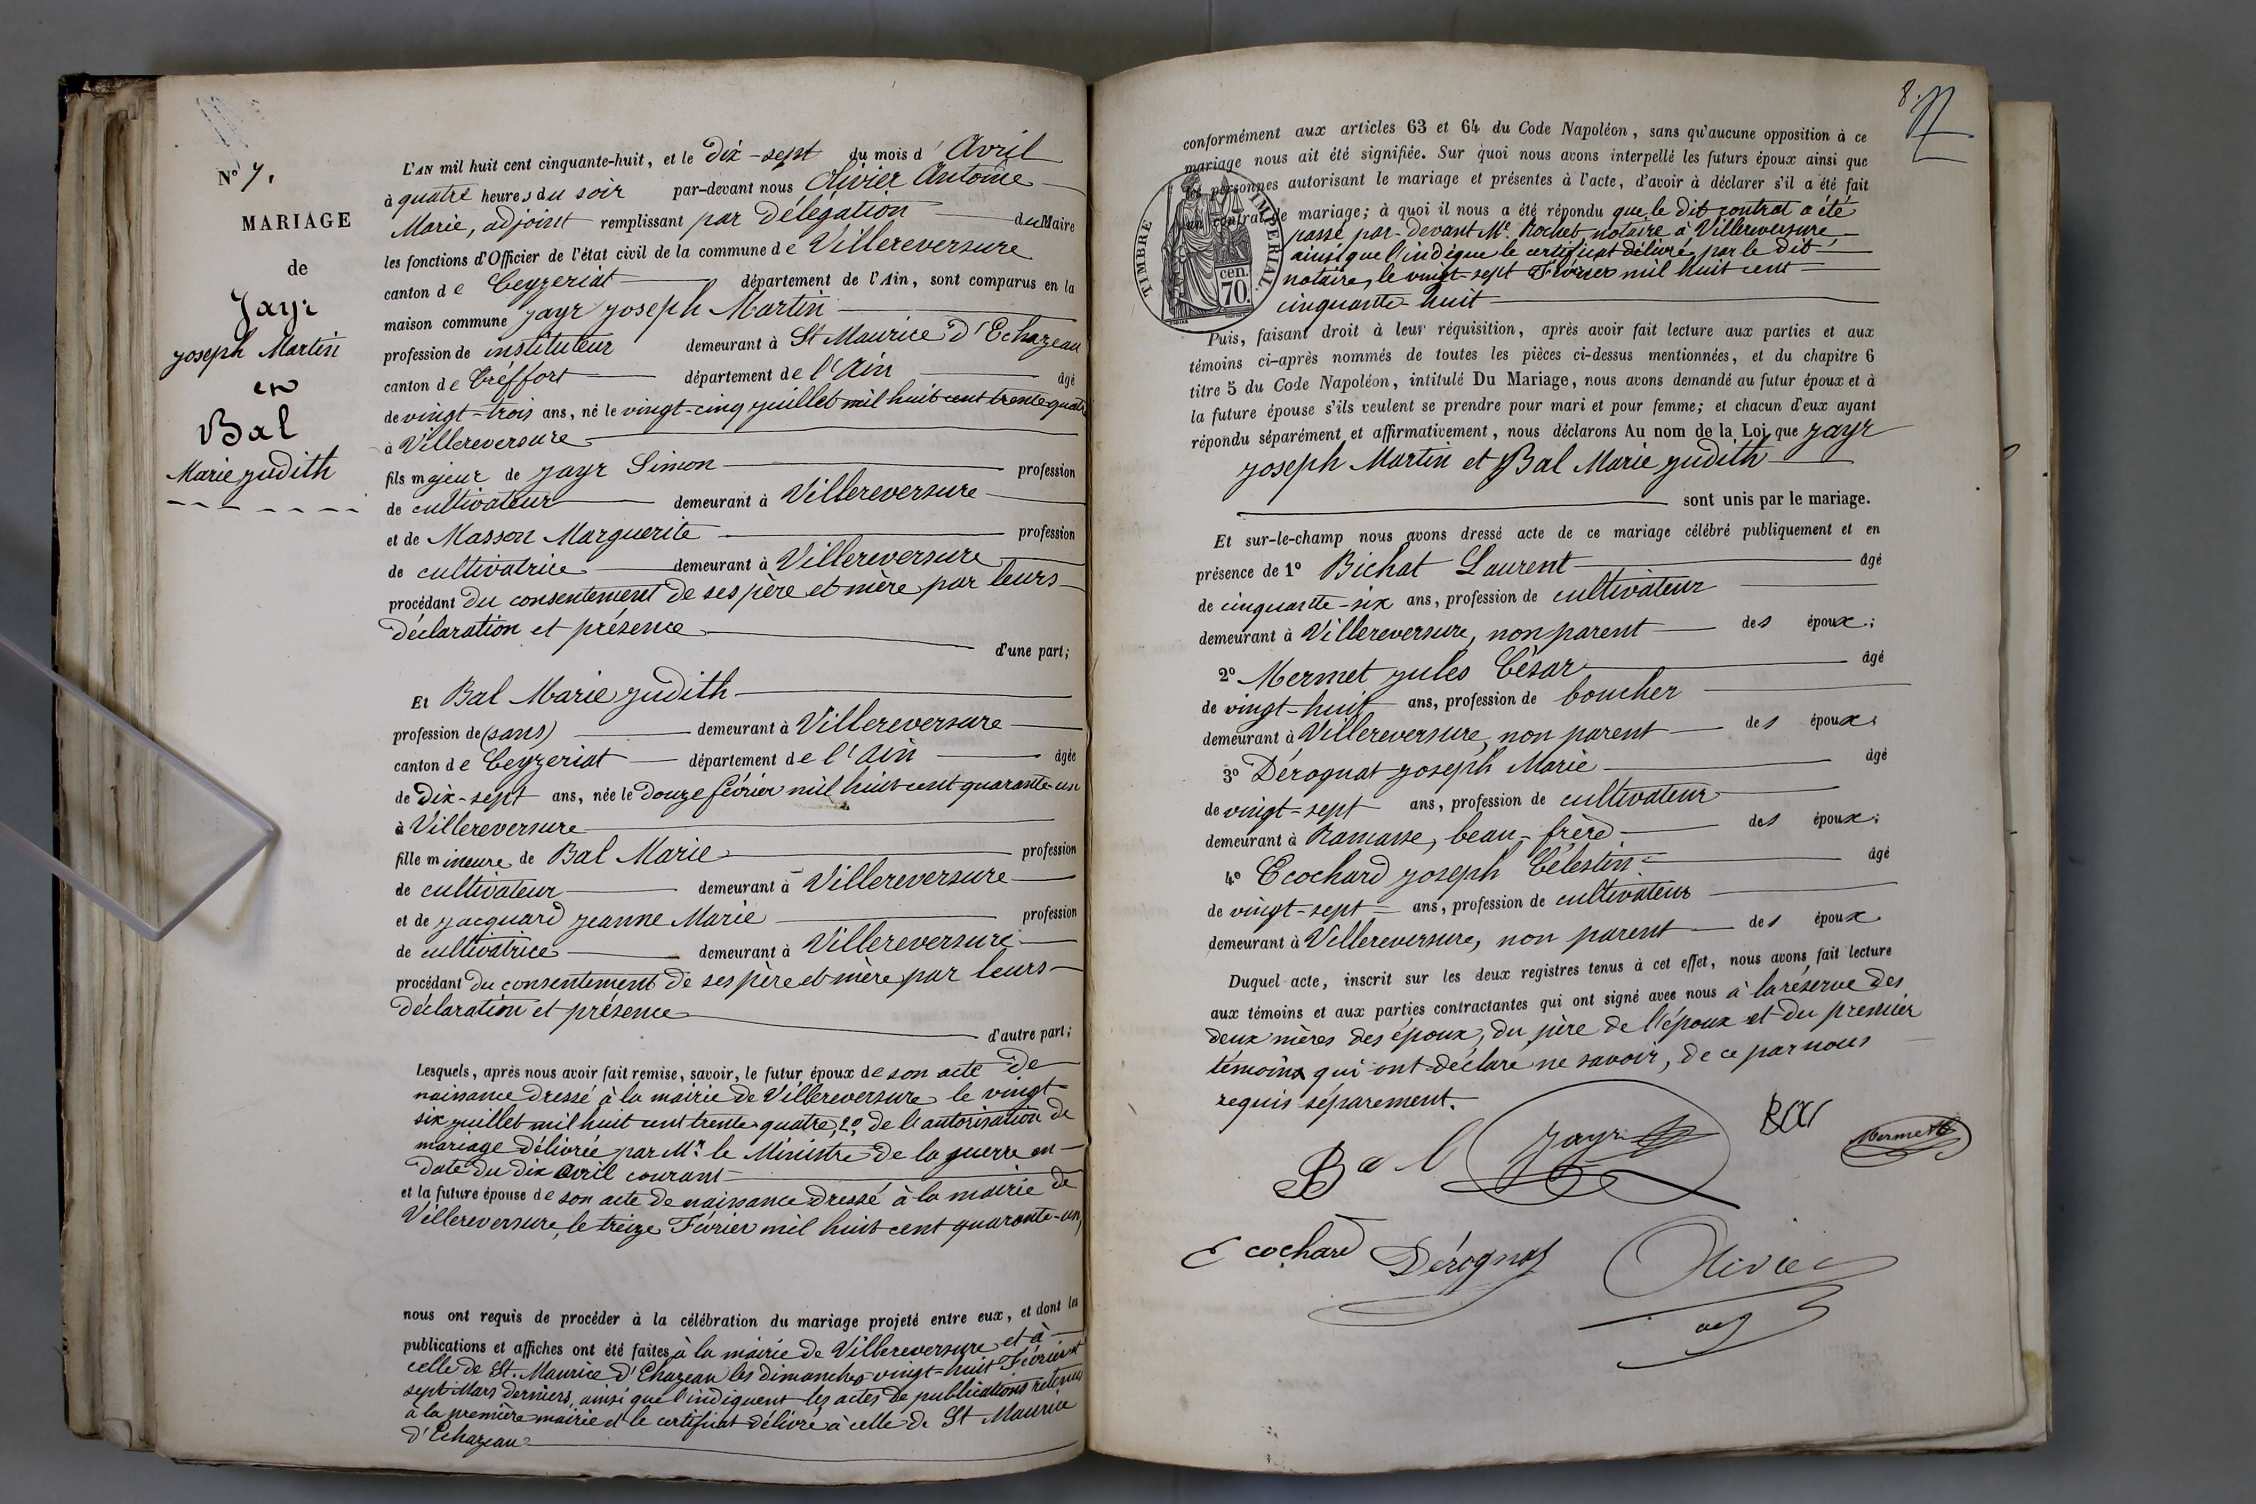 N° 7.
MARIAGE
de
Jayr
Joseph Martin
et
Bal
Marie Judith
L'AN mil huit cent cinquante-huit, et le dix-sept du mois d'Avril
à quatre heures du soir par-devant nous Olivier Antoine
Marie, adjoint remplissant par délégation du Maire
les fonctions d'Officier de l'état civil de la commune de Villereversure
canton de Ceyzeriat département de l'Ain, sont comparus en la
maison commune Jayr Joseph Martin
profession de instituteur demeurant à St Maurice d'Echazeau
canton de Tréffort département de l'Ain âgé
de vingt-trois ans, né le vingt-cinq juillet mil huit cent trente quatre
à Villereversure
fils majeur de Jayr Simon profession
de cultivateur demeurant à Villereversure
et de Masson Marguerite profession
de cultivatrice demeurant à Villereversure
procédant du consentement de ses père et mère par leurs
déclaration et présence
d'une part;
Et Bal Marie Judith
profession de (sans) demeurant à Villereversure
canton de Ceyzeriat département de l'Ain âgée
de dix-sept ans, née le douze février mil huit cent quarante-un
à Villereversure
fille mineure de Bal Marie profession
de cultivateur demeurant à Villereversure
et de Jacquard Jeanne Marie profession
de cultivatrice demeurant à Villereversure
procédant du consentement de ses père et mère par leurs
déclaration et présence
d'autre part;
Lesquels, après nous avoir fait remise, savoir, le futur époux de son acte de
naissance dressé à la mairie de Villereversure le vingt
six juillet mil huit cent trente quatre, 2° de l'autorisation de
mariage délivrée par Mr le Ministre de la guerre en
date du dix avril courant
et la future épouse de son acte de naissance dressé à la mairie de
Villereversure, le treize Février mil huit cent quarante-un,
nous ont requis de procéder à la célébration du mariage projeté entre eux, et dont les
publications et affiches ont été faites à la mairie de Villereversure et à
celle de St. Maurice d'Echazeau les dimanches vingt-huit Février et
sept Mars derniers, ainsi que l'indiquent les actes de publications retenus
à la première mairie et le certificat délivré à celle de St Maurice
d'Echazeau
8.
conformément aux articles 63 et 64 du Code Napoléon, sans qu'aucune opposition à ce
mariage nous ait été signifiée. Sur quoi nous avons interpellé les futurs époux ainsi que
les personnes autorisant le mariage et présentes à l'acte, d'avoir à déclarer s'il a été fait
un contrat de mariage; à quoi il nous a été répondu que le dit contrat a été
passé par-devant Me. Rochet notaire à Villereversure
ainsi que l'indique le certificat délivré par le dit
notaire, le vingt-sept Février mil huit cent
cinquante-huit
TIMBRE IMPERIAL
70 cen.
Puis, faisant droit à leur réquisition, après avoir fait lecture aux parties et aux
témoins ci-après nommés de toutes les pièces ci-dessus mentionnées, et du chapitre 6
titre 5 du Code Napoléon, intitulé Du Mariage, nous avons demandé au futur époux et à
la future épouse s'ils veulent se prendre pour mari et pour femme; et chacun d'eux ayant
répondu séparément et affirmativement, nous déclarons Au nom de la Loi que Jayr
Joseph Martin et Bal Marie Judith
sont unis par le mariage.
Et sur-le-champ nous avons dressé acte de ce mariage célébré publiquement et en
présence de 1° Bichat Laurent âgé
de cinquante-six ans, profession de cultivateur
demeurant à Villereversure, non parent des époux;
2° Mermet Jules César âgé
de vingt-huit ans, profession de boucher
demeurant à Villereversure, non parent des époux;
3° Dérognat Joseph Marie âgé
de vingt-sept ans, profession de cultivateur
demeurant à Ramasse, beau-frère des époux;
4° Ecochard Joseph Célestin âgé
de vingt-sept ans, profession de cultivateur
demeurant à Villereversure, non parent des époux
Duquel acte, inscrit sur les deux registres tenus à cet effet, nous avons fait lecture
aux témoins et aux parties contractantes qui ont signé avec nous à la réserve des
deux mères des époux, du père de l'époux et du premier
témoins qui ont déclaré ne savoir, de ce par nous
requis séparement.
Bal Jayr Mermet
Ecochard Dérognat Olivier
adj